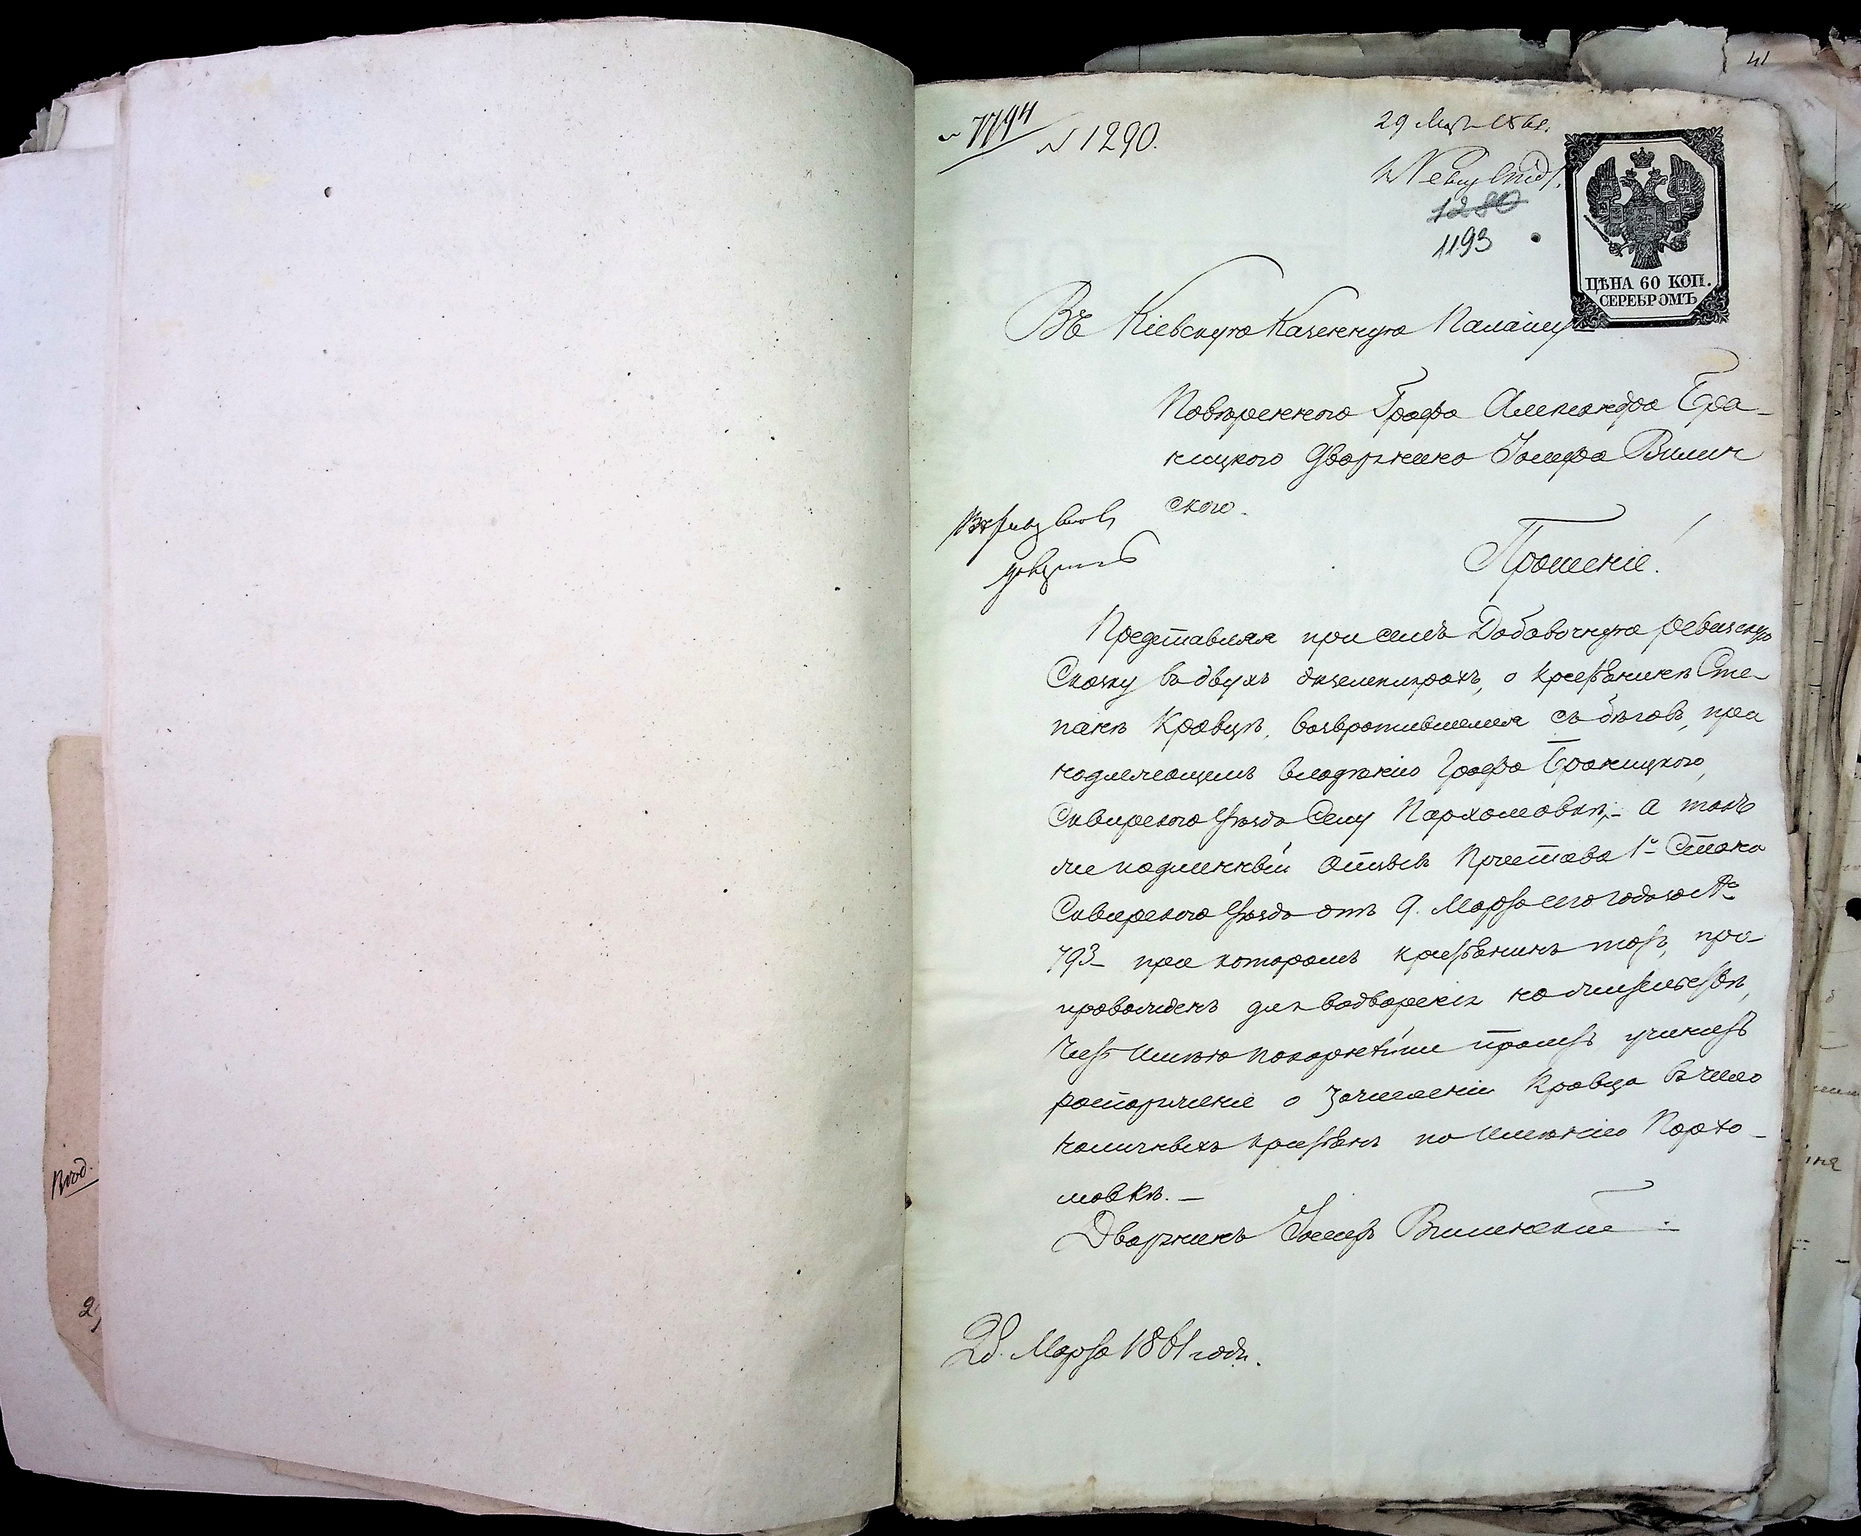 41
№ 7794
№ 1290.
29 Мар. 1861.
1280
1193
ЦѢНА 60 КОП.
СЕРЕБРОМЪ
Въ Кіевскую Казенную Палату
Повѣреннаго Графа Александра Бра-
ницкаго Дворянина Іосифа Вилин
скаго.
Прошеніе!
Представляя при семъ Добавочную ревизскую
Сказку въ двухъ экземплярахъ, о крестьянинѣ Сте-
панѣ Кравцѣ, возвратившемся съ бѣговъ, при
надлежащемъ владѣнію Графа Браницкаго,
Сквирскаго уѣзда Селу Пархомовкѣ, - а такъ
же подлинный отзывъ Пристава 1го Стана
Сквирскаго уѣзда отъ 9. Марта сего года за №
793 при которомъ крестьянинъ тотъ, пре-
провожденъ для водворенія на жительство,
Честь имѣю покорнѣйше просить учинить
распоряженіе о зачисленіи Кравца въ число
наличныхъ крестьянъ по имѣнію Пархо-
мовкѣ. -
Дворянинъ Іосифъ Вилинскій
28. Марта 1861 года.
Вход.
29